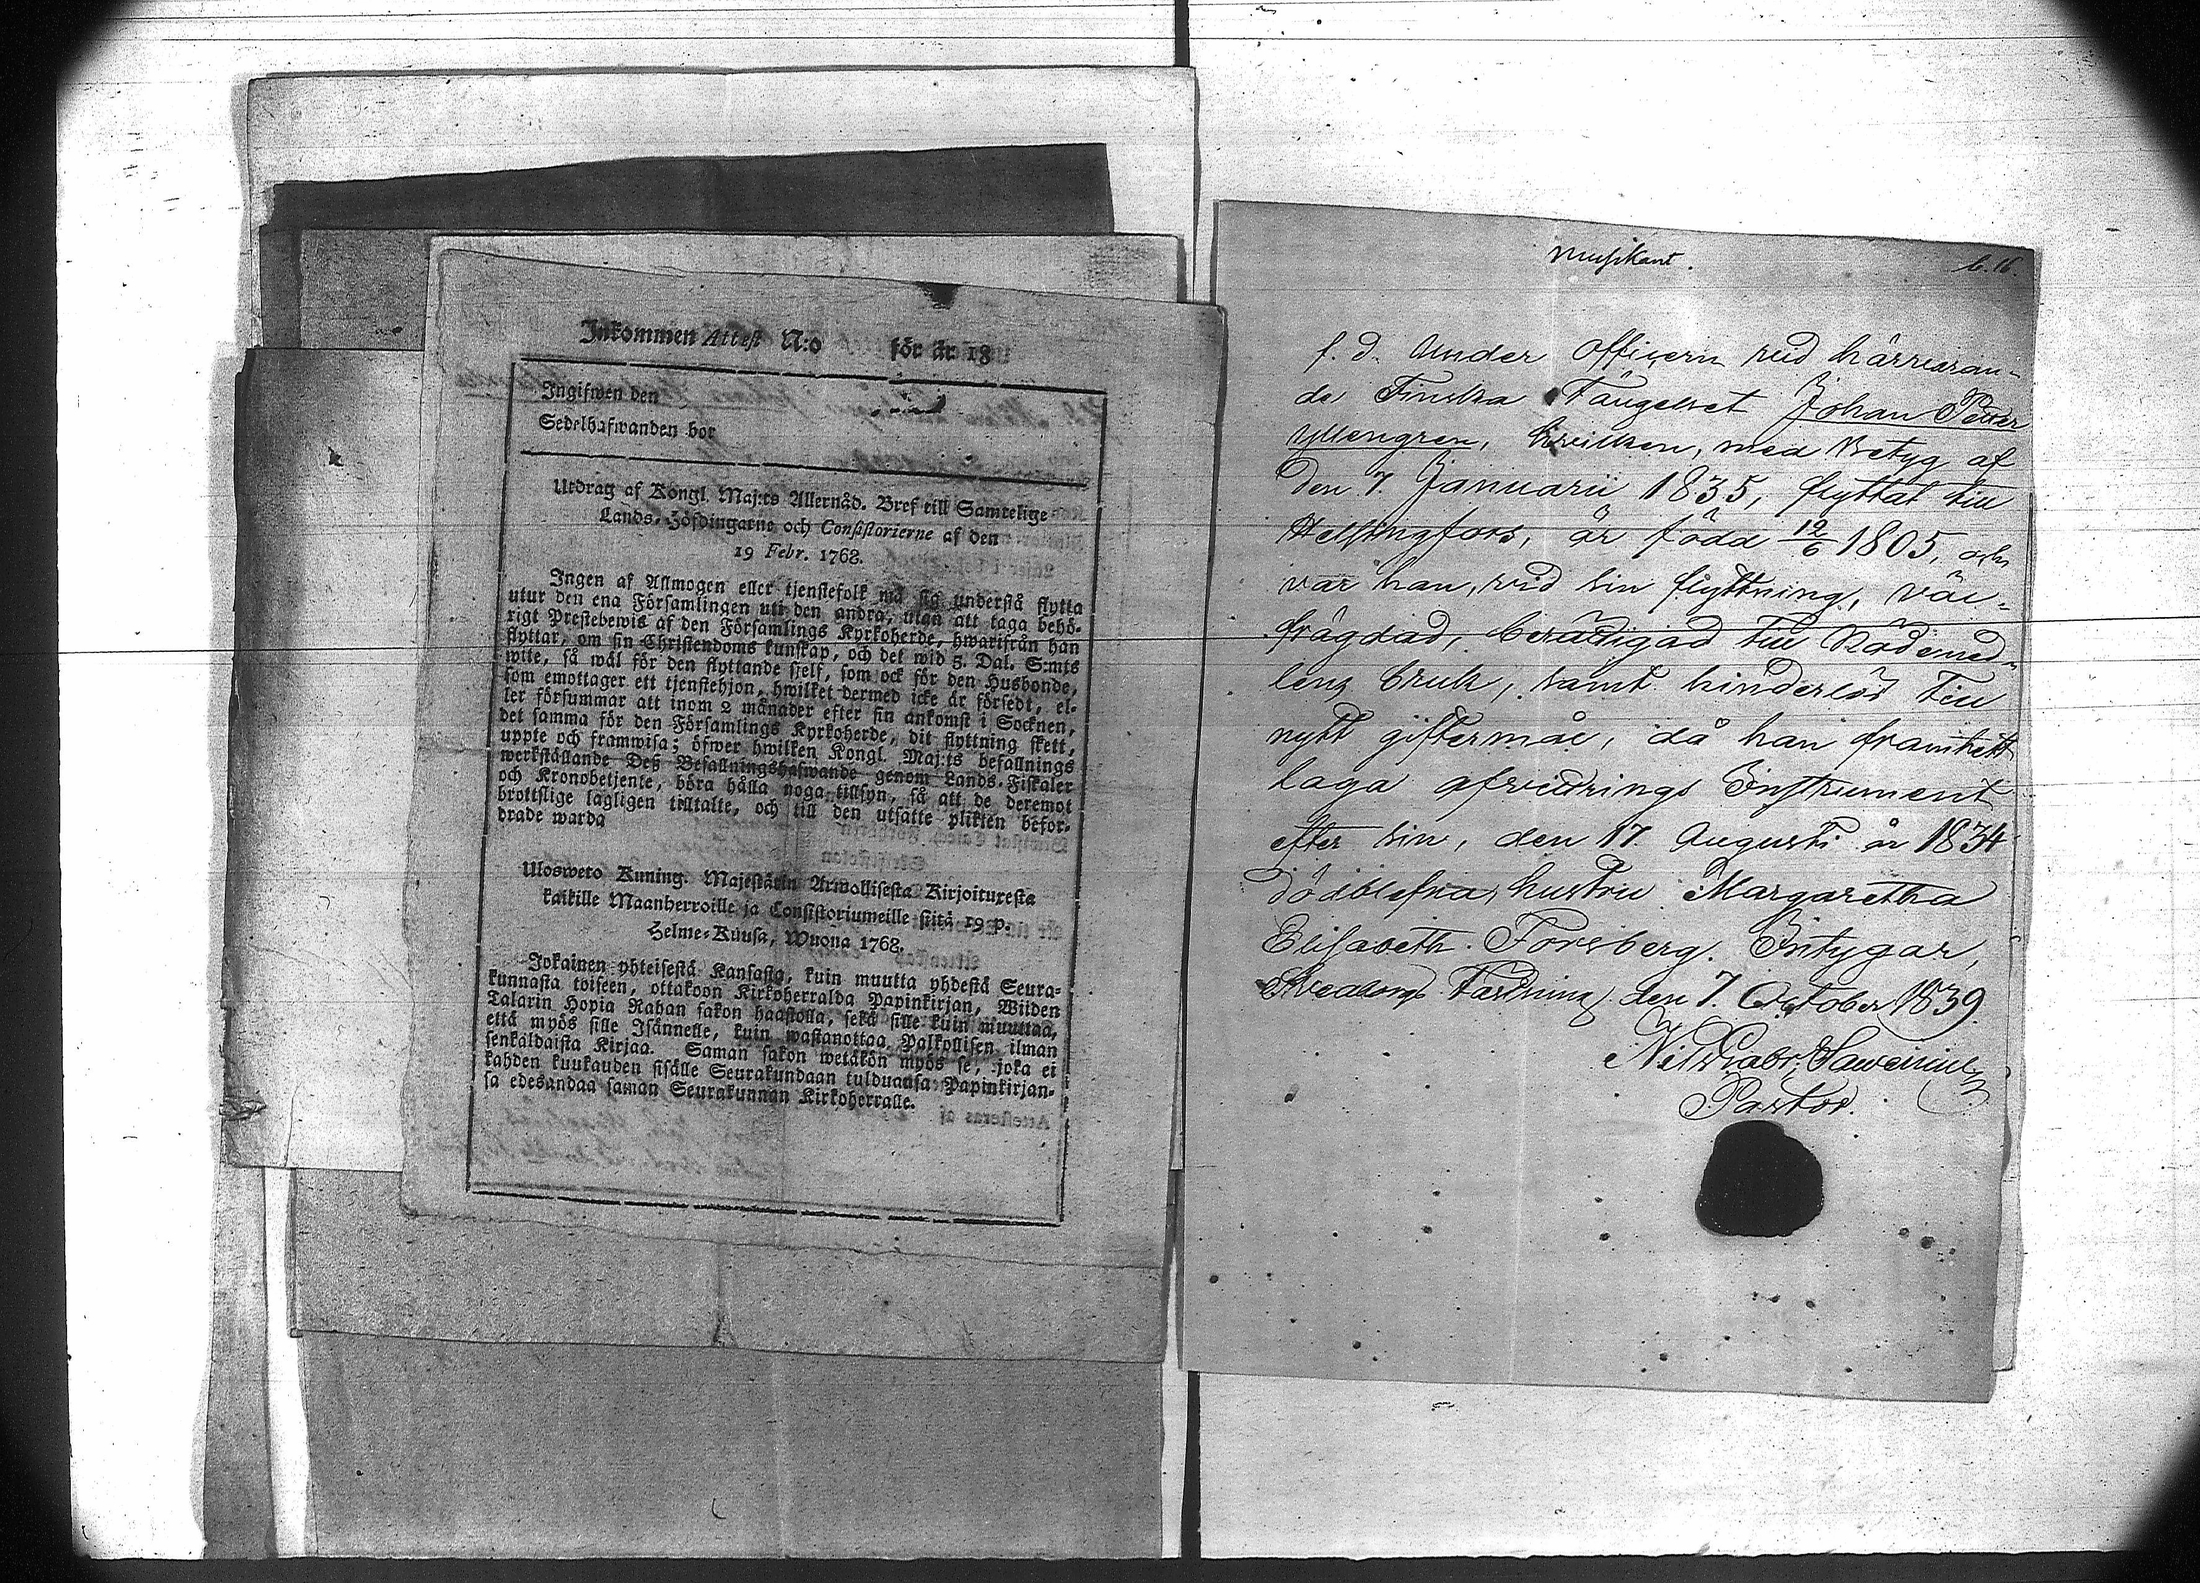 Inkommen Attest N:o för år 18
Ingifwen den
Sedelhafwanden bor
Utdrag af Kongl. Maj:ts Allernåd. Bref till Samtelige
Lands-Höfdingarne och Consistorierne af den
19 Febr. 1768.
Ingen af Allmogen eller tjenstefolk må sig understå flytta
utur den ena Församlingen uti den andra, utan att taga behö-
rigt Prestebewis af den Församlings Kyrkoherde, hwarifrån han
flyttar, om sin Christendoms kunskap, och det wid 5. Dal. S:mts
wite, så wäl för den flyttande sjelf, som ock för den Husbonde,
som emottager ett tjenstehjon, hwilket dermed icke är försedt, el-
ler försummar att inom 2 månader efter sin ankomst i Socknen,
det samma för den Församlings Kyrkoherde, dit flyttning skett,
uppte och framwisa; öfwer hwilken Kongl. Maj:ts befallnings
werkställande Deß Befallningshafwande genom Lands-Fiskaler
och Kronobetjente, böra hålla noga tillsyn, så att de deremot
brottslige lagligen tilltalte, och till den utsatte plikten befor-
drade warda
Ulosweto Kuning. Majestätin Armollisesta Kirjoituxesta
kaikille Maanherroille ja Consistoriumeille siitä 19 p.
Helme-Kuusa, Wuona 1768.
Jokainen yhteisestä Kansasta, kuin muutta yhdestä Seura-
kunnasta toiseen, ottakoon Kirkoherralda Papinkirjan, Wiiden
Talarin Hopia Rahan sakon haastolla, sekä sille kuin muuttaa,
että myös sille Isännelle, kuin wastanottaa Palkollisen ilman
senkaldaista Kirjaa. Saman sakon wetäkön myös se, joka ei
kahden kuukauden sisälle Seurakundaan tulduansa Papinkirjan-
sa edesandaa saman Seurakunnan Kirkoherralle.
Musikant.
b. 16.
f. d. Under officern vid härvaran-
de Finska Fängelset Johan Petter
Yllengren, hvilken, med Betyg af
den 7. Januarii 1835, flyttat till
Helsingfors, är född 12/6 1805, och
var han, vid sin flyttning, väl-
frägdad, berättigad till Nådemed-
lens bruk, samt hinderlös till
nytt giftermål, då han framtett
laga afvittrings Instrument
efter sin, den 17 Augusti år 1834
dödblefna hustru Margaretha
Elisabeth Forsberg. Intygar,
Sveaborgs Fästning den 7. October 1839.
Nils Gabr.
Pastor.